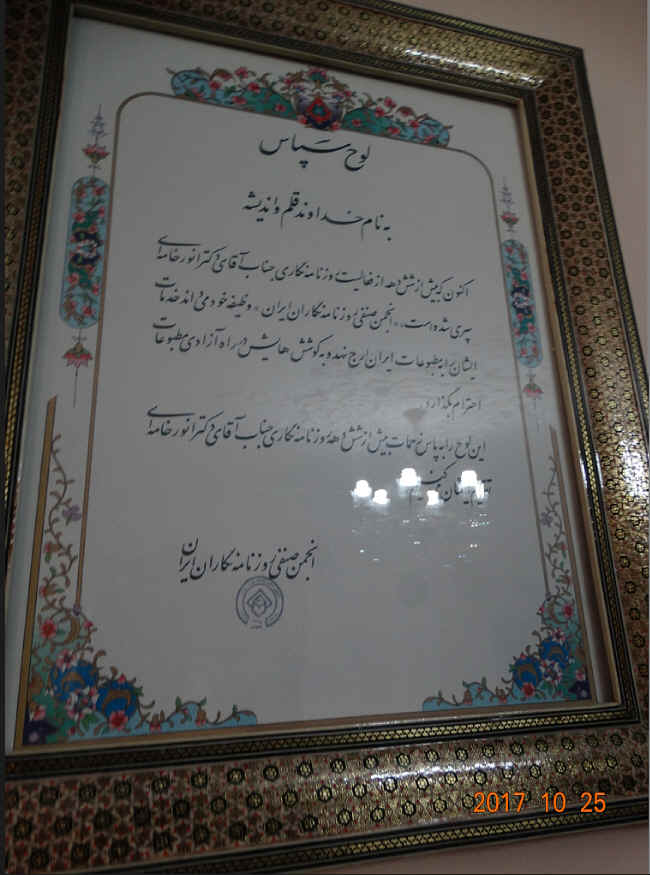 لوح سپاس
به نام خداوند قلم و اندیشه
اکنون که بیش از شش دهه از فعالیت روزنامه نگاری جناب آقای دکتر انور خامه ای
سپری شده است، «انجمن صنفی روزنامه نگاران ایران» وظیفه خود می داند خدمات
ایشان را به مطبوعات ایران ارج نهد و به کوشش هایش در راه آزادی مطبوعات
احترام بگذارد.
این لوح را به پاس زحمات بیش از شش دهه روزنامه نگاری جناب آقای دکتر انور خامه ای
تقدیم ایشان
انجمن صنفی روزنامه نگاران ایران
2017 10 25